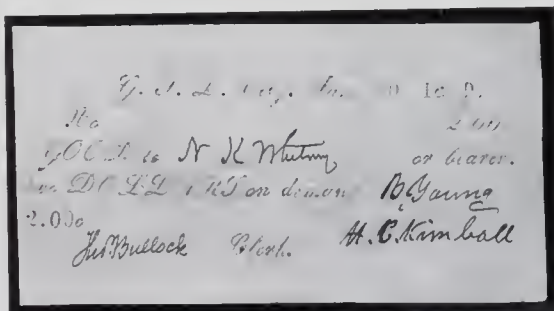 G. S. L. City.
No 2.00
GOOD to N K Whitney or bearer.
DOLLARS on demand B. Young
2.00
Thos Bullock Clerk. H. C. Kimball